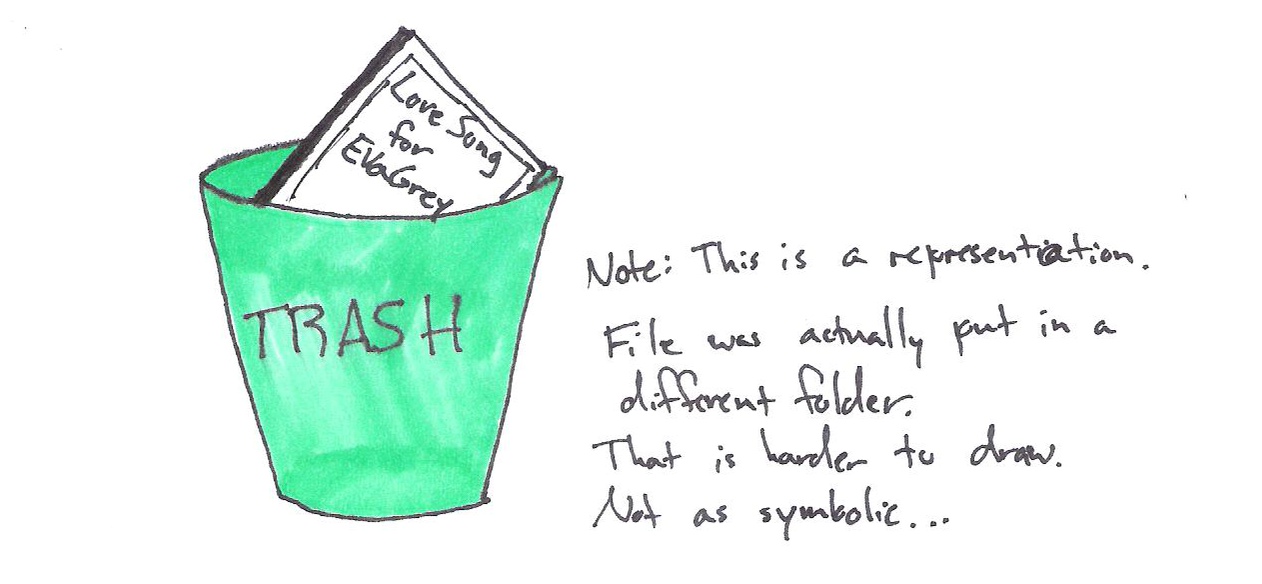 Love Song
for
Eva Grey
TRASH
Note: This is a representation.
File was actually put in a
different folder.
That is harder to draw.
Not as symbolic...